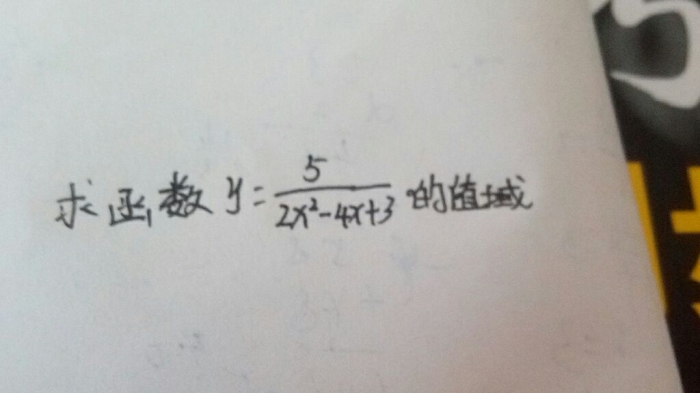 求函数 y = 5/(2x²-4x+3) 的值域